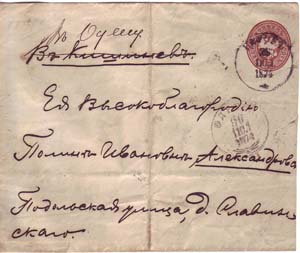 въ Одессу
Въ Кишиневъ.
Ея Высокоблагородію
Полинѣ Ивановнѣ Александрова
Подольская улица, д. Славин-
скаго.
1874
1874